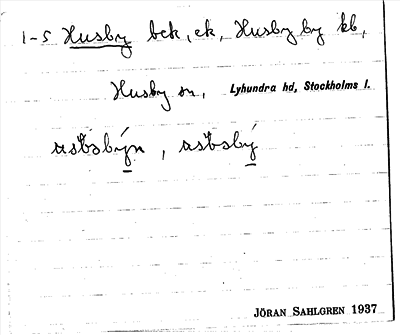 1-5 Husby bck, ek, Husby by kb,
Husby sn, Lyhundra hd, Stockholms l.
JÖRAN SAHLGREN 1937